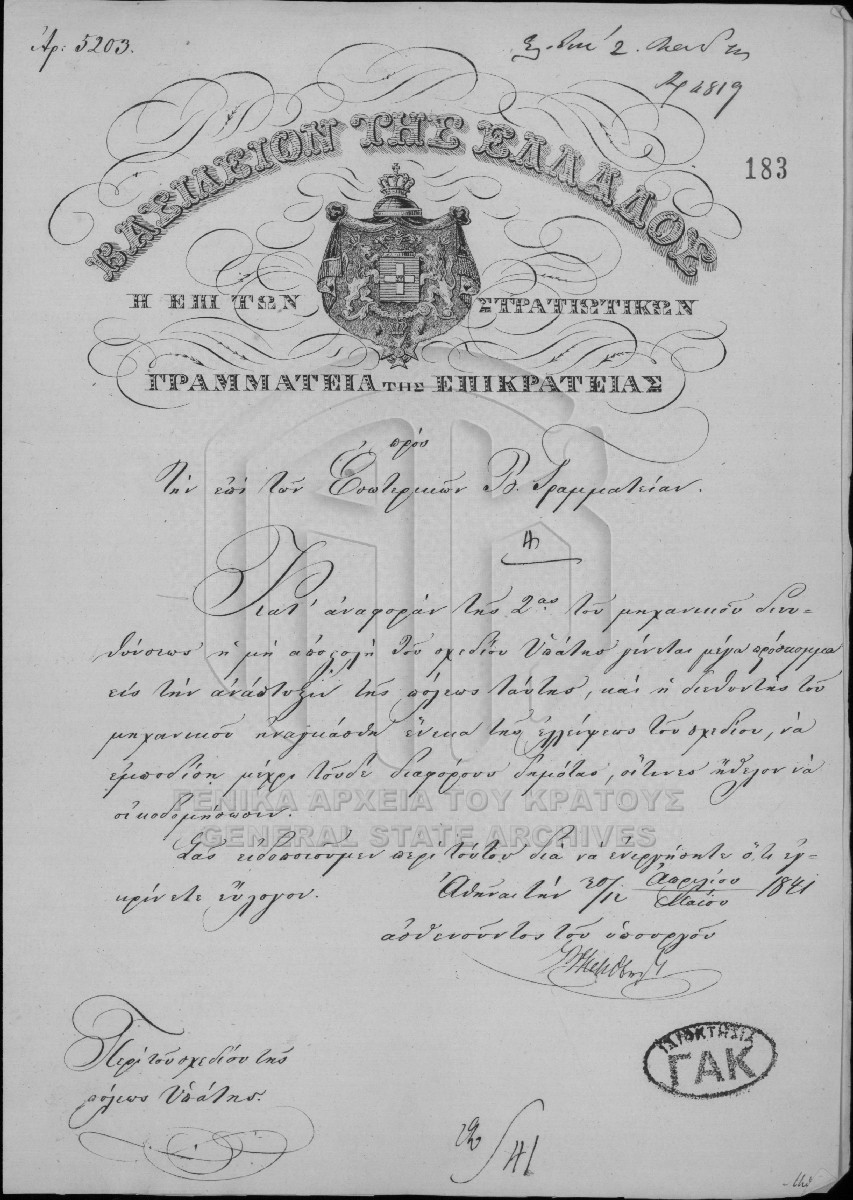 Ἀρ: 5203.
183
ΒΑΣΙΛΕΙΟΝ ΤΗΣ ΕΛΛΑΔΟΣ
Η ΕΠΙ ΤΩΝ ΣΤΡΑΤΙΩΤΙΚΩΝ
ΓΡΑΜΜΑΤΕΙΑ ΤΗΣ ΕΠΙΚΡΑΤΕΙΑΣ
πρὸς
Τὴν ἐπὶ τῶν Ἐσωτερικῶν Β. Γραμματείαν.
Κατ' ἀναφορὰν τῆς 2ας τοῦ μηχανικοῦ διευ-
θύνσεως ἡ μὴ ἀποστολὴ τοῦ σχεδίου Ὑπάτης γίνεται μέγα πρόσκομμα
εἰς τὴν ἀνάπτυξιν τῆς πόλεως ταύτης, καὶ ἡ διεύθυντὴς τοῦ
μηχανικοῦ ἠναγκάσθη ἕνεκα τῆς ἐλλείψεως τοῦ σχεδίου, νὰ
ἐμποδίση μέχρι τοῦδε διαφόρους δημότας, οἵτινες ἤθελον νὰ
οἰκοδομήσωσιν.
Σᾶς εἰδοποιοῦμεν περὶ τούτου διὰ νὰ ἐνεργήσητε ὅ,τι ἐγ-
κρίνετε εὔλογον.
Ἀθῆναι τὴν 30/12 Ἀπριλίου/Μαΐου 1841
ἀσθενοῦντος τοῦ ὑπουργοῦ
Περὶ τοῦ σχεδίου τῆς
πόλεως Ὑπάτης.
ΙΔΙΟΚΤΗΣΙΑ
ΓΑΚ
ΓΕΝΙΚΑ ΑΡΧΕΙΑ ΤΟΥ ΚΡΑΤΟΥΣ
GENERAL STATE ARCHIVES